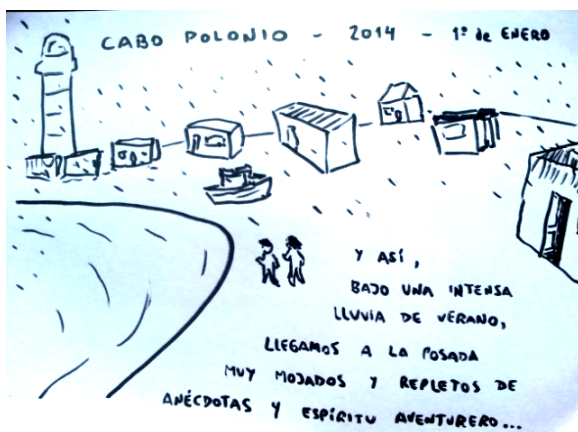 CABO POLONIO - 2014 - 1º de ENERO
Y ASÍ,
BAJO UNA INTENSA
LLUVIA DE VERANO,
LLEGAMOS A LA POSADA
MUY MOJADOS Y REPLETOS DE
ANÉCDOTAS Y ESPÍRITU AVENTURERO...